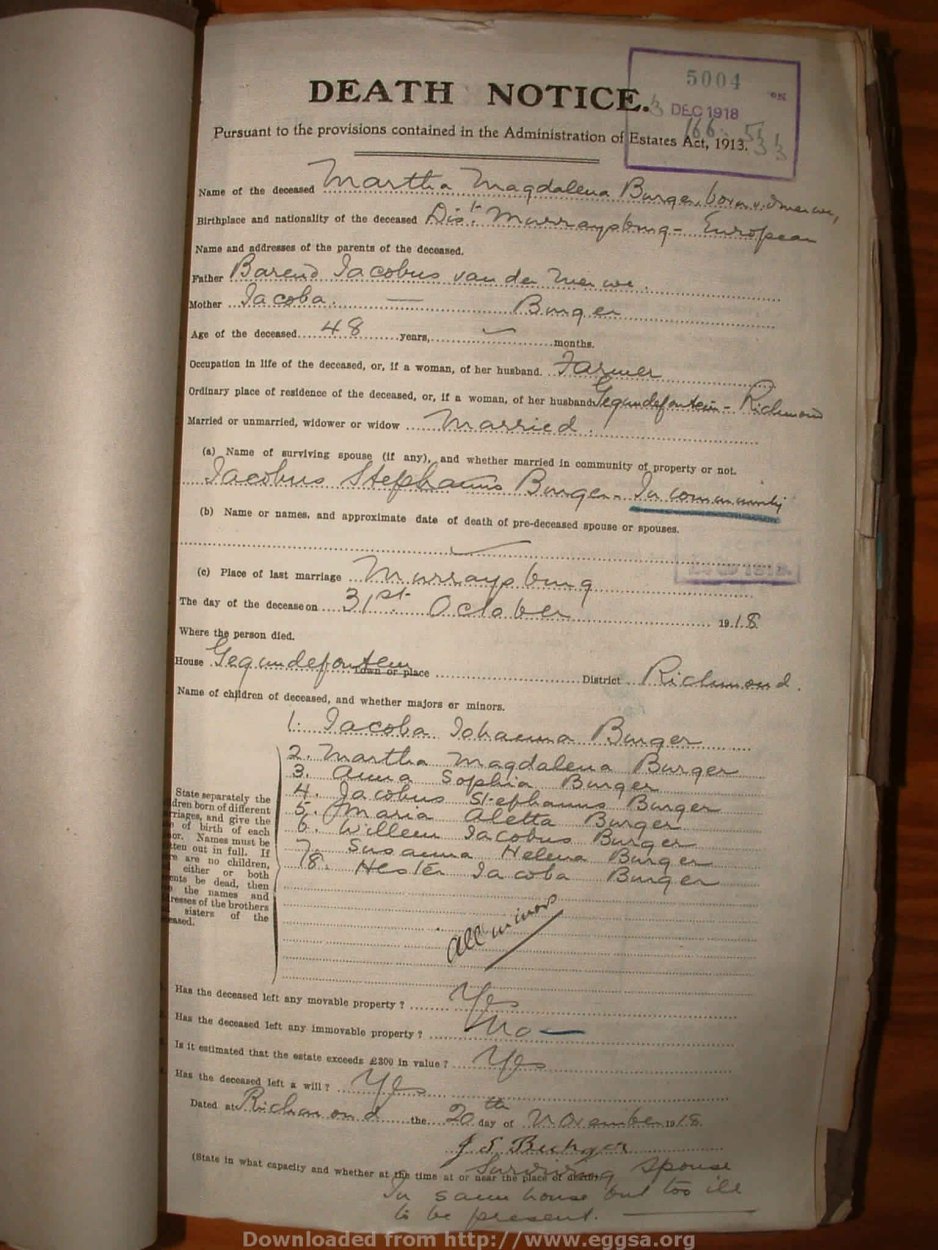 DEATH NOTICE.
5004
DEC 1918
Pursuant to the provisions contained in the Administration of Estates Act, 1913.
Name of the deceased Martha Magdalena Burger, born v. d. Merwe,
Birthplace and nationality of the deceased Dist. Murraysburg - European
Name and addresses of the parents of the deceased.
Father Barend Jacobus van der Merwe.
Mother Jacoba — Burger
Age of the deceased 48 years, months.
Occupation in life of the deceased, or, if a woman, of her husband. Farmer
Ordinary place of residence of the deceased, or, if a woman, of her husband - Richmond
Married or unmarried, widower or widow Married.
(a) Name of surviving spouse (if any), and whether married in community of property or not.
Jacobus Stephanus Burger - In community
(b) Name or names, and approximate date of death of pre-deceased spouse or spouses.
(c) Place of last marriage Murraysburg
The day of the decease on 31st October 1918
Where the person died.
House Town or place District Richmond.
Name of children of deceased, and whether majors or minors.
1. Jacoba Johanna Burger
2. Martha Magdalena Burger
3. Anna Sophia Burger
4. Jacobus Stephanus Burger
5. Maria Aletta Burger
6. Willem Jacobus Burger
7. Susanna Helena Burger
8. Hester Jacoba Burger
State separately the
dren born of different
riages, and give the
of birth of each
or. Names must be
tten out in full. If
re are no children,
either or both
ents be dead, then
the names and
resses of the brothers
sisters of the
eased.
All minors
Has the deceased left any movable property ? Yes
Has the deceased left any immovable property ? No —
Is it estimated that the estate exceeds £300 in value ? Yes
Has the deceased left a will ? Yes
Dated at Richmond the 20th day of November 1918.
J. S. Burger
(State in what capacity and whether at the time at or near the place of death) Surviving Spouse
In same house but too ill
to be present.
Downloaded from http://www.eggsa.org